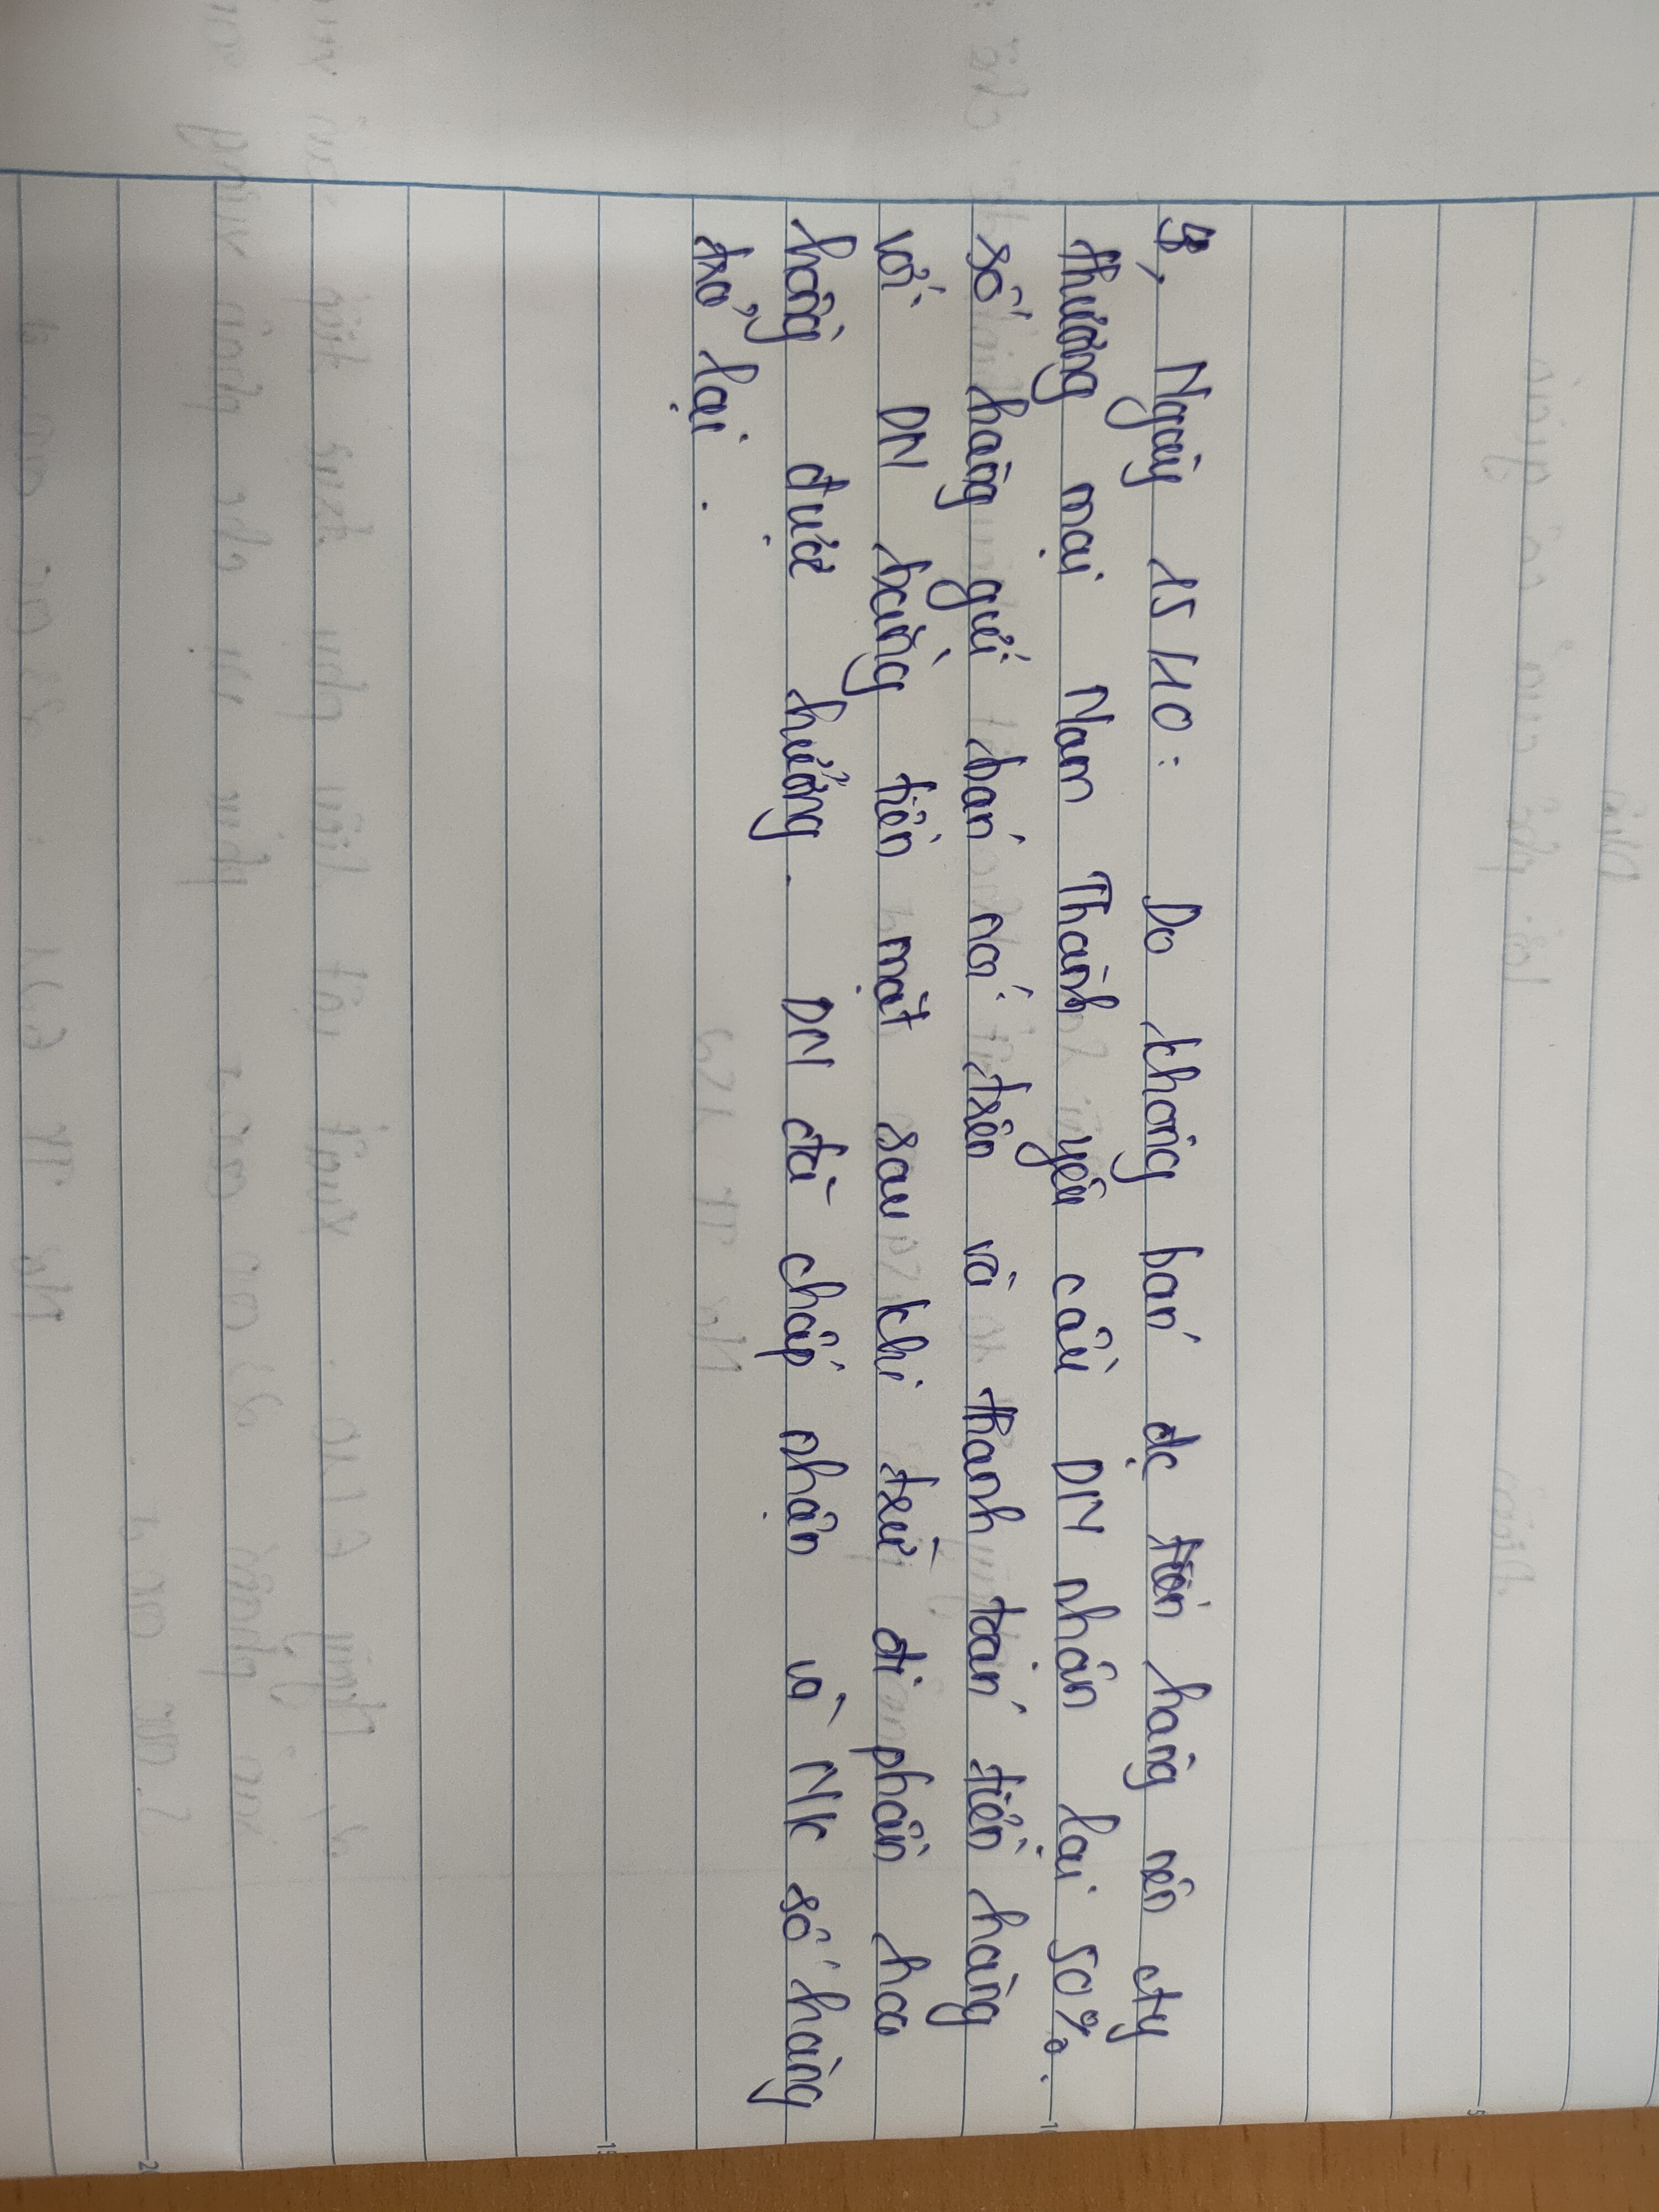 8, Ngày 15/10: Do không bán đc trên hàng nên cty
thương mại Nam Thành yêu cầu DN nhân lại 50%.
số hàng gửi bán nói trên và thanh toán tiền hàng
với DN bằng tiền mặt sau khi trừ đi phần hoa
hồng được hưởng. DN đã chấp nhận và NK số hàng
trả lại.